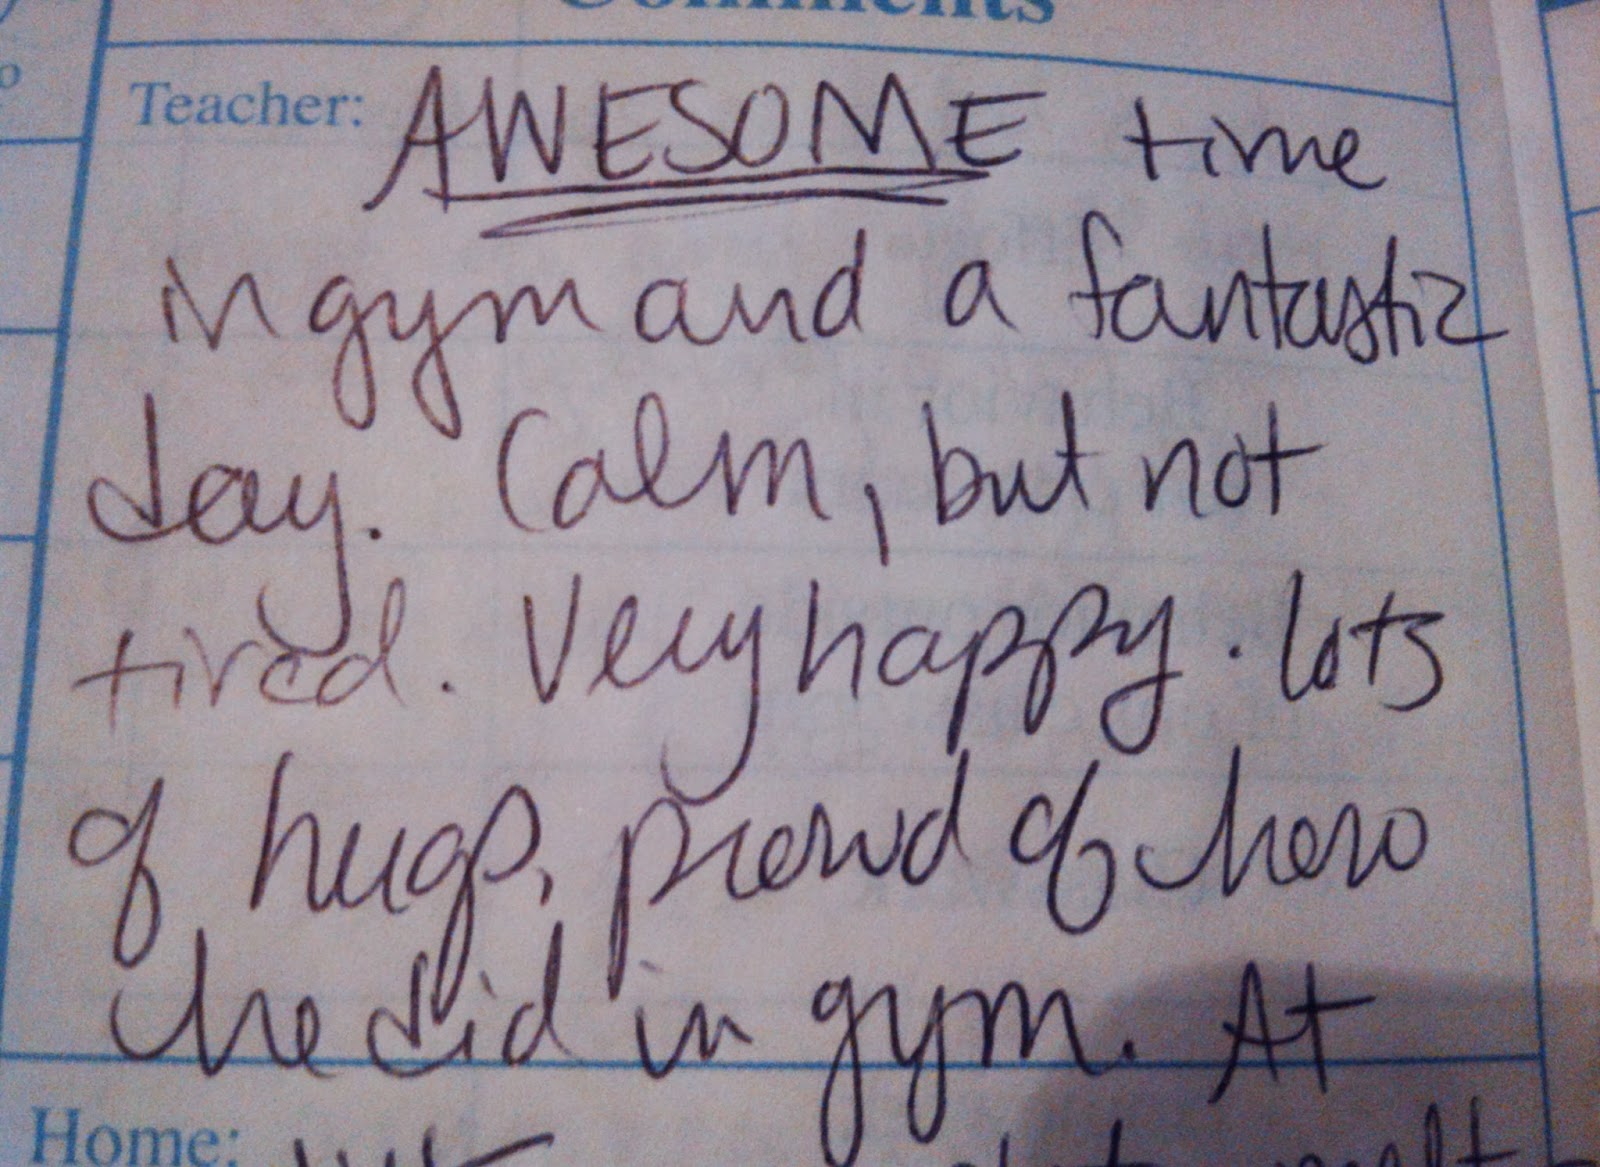 Comments
Teacher: AWESOME time
in gym and a fantastic
day. Calm, but not
tired. Very happy. lots
of hugs, proud of how
he did in gym. At
Home: